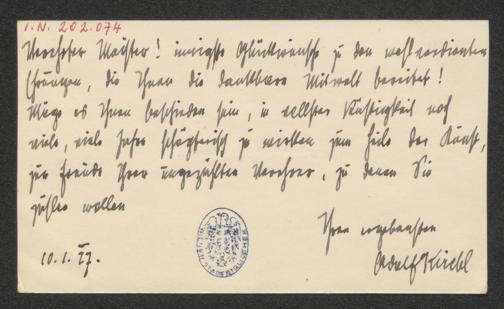 I.N. 202.074
Verehrter Meister! innigste Glückwünsche zu den wohlverdienten
Ehrungen, die Ihnen die dankbare Mitwelt bereitet!
Möge es Ihnen beschieden sein, in vollster Rüstigkeit noch
viele, viele Jahre schöpferisch zu wirken zum Heile der Kunst,
zur Freude Ihrer ungezählten Verehrer, zu denen Sie
zählen wollen
Ihren ergebensten
10.1.27.
Adolf Kirchl